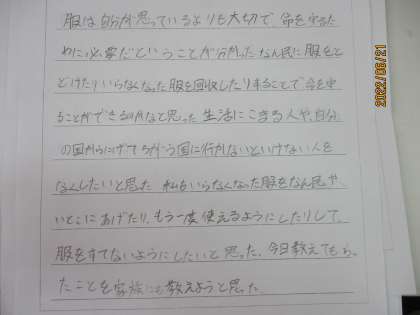 服は自分が思っているよりも大切で、命を守るた
めに必要だということが分かった。なん民に服をと
どけたりいらなくなった服を回収したりすることで命を守
ることができるのかなと思った。生活にこまる人や、自分
の国からにげてちがう国に行かないといけない人を
なくしたいと思った。私もいらなくなった服をなん民や、
いとこにあげたり、もう一度使えるようにしたりして、
服をすてないようにしたいと思った。今日教えてもらっ
たことを家族にも教えようと思った。
2022/06/21